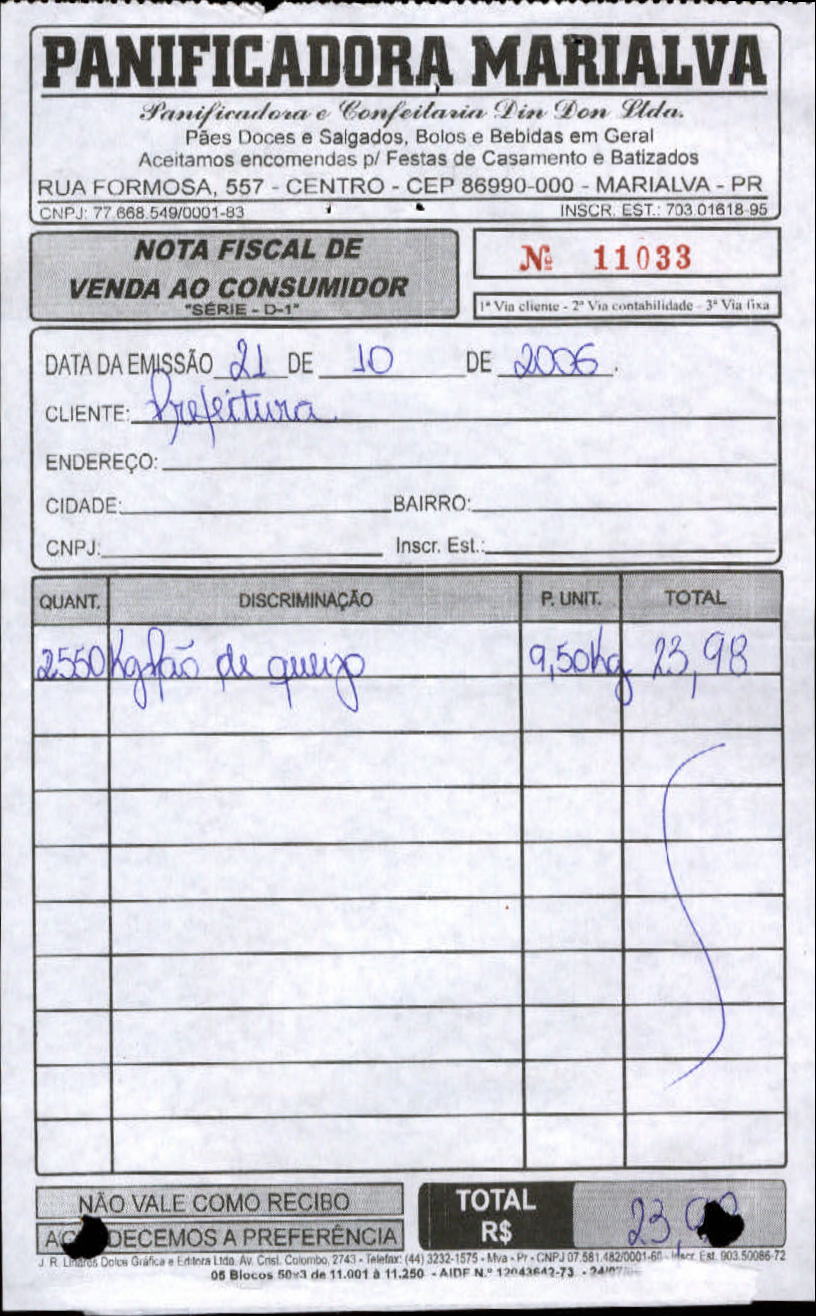 PANIFICADORA MARIALVA
Panificadora e Confeitaria Din Don Ltda.
Pães Doces e Salgados, Bolos e Bebidas em Geral
Aceitamos encomendas p/ Festas de Casamento e Batizados
RUA FORMOSA, 557 - CENTRO - CEP 86990-000 - MARIALVA - PR
CNPJ: 77.668.549/0001-83 INSCR. EST.: 703.01618-95
NOTA FISCAL DE
VENDA AO CONSUMIDOR
"SÉRIE - D-1"
Nº 11033
1ª Via cliente - 2ª Via contabilidade - 3ª Via fixa
DATA DA EMISSÃO 21 DE 10 DE 2006.
CLIENTE: Prefeitura
ENDEREÇO:
CIDADE: BAIRRO:
CNPJ: Inscr. Est.:
QUANT. DISCRIMINAÇÃO P. UNIT. TOTAL
2550 Kg Pão de queijo 9,50 kg 23,98
NÃO VALE COMO RECIBO
DECEMOS A PREFERÊNCIA
TOTAL
R$ 23,
J. R. Linares Dolce Gráfica e Editora Ltda. Av. Crist. Colombo, 2743 - Telefax: (44) 3232-1575 - Mva - Pr - CNPJ 07.581.482/0001-60 - Inscr. Est. 903.50086-72
05 Blocos 50x3 de 11.001 à 11.250 - AIDF N.º 12043642-73 - 24/07/